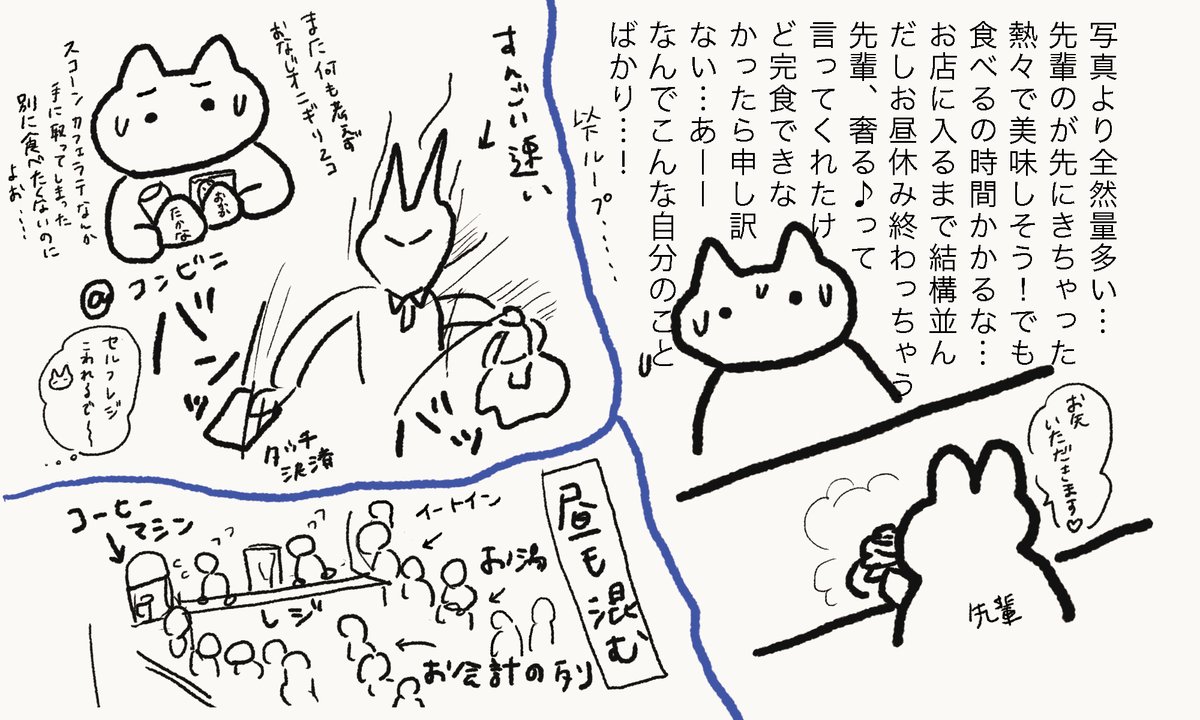 写真より全然量多い…
先輩のが先にきちゃった
熱々で美味しそう！でも
食べるの時間かかるな…
お店に入るまで結構並ん
だしお昼休み終わっちゃう
先輩、奢る♪って
言ってくれたけ
ど完食できな
かったら申し訳
ない…あーー
なんでこんな自分のこと
ばかり…！
以下ループ……
お先
いただきます♡
先輩
すんごい速い
また何も考えず
おなじオニギリ2コ
スコーンカフェラテなんか
手に取ってしまった
別に食べたくないのに
よお……
おお
たかな
@コンビニ
バ
ーン
ッ
セルフレジ
こわれるで〜
タッチ
決済
バッ
昼も混む
コーヒー
マシン
イートイン
お湯
レジ
お会計の列